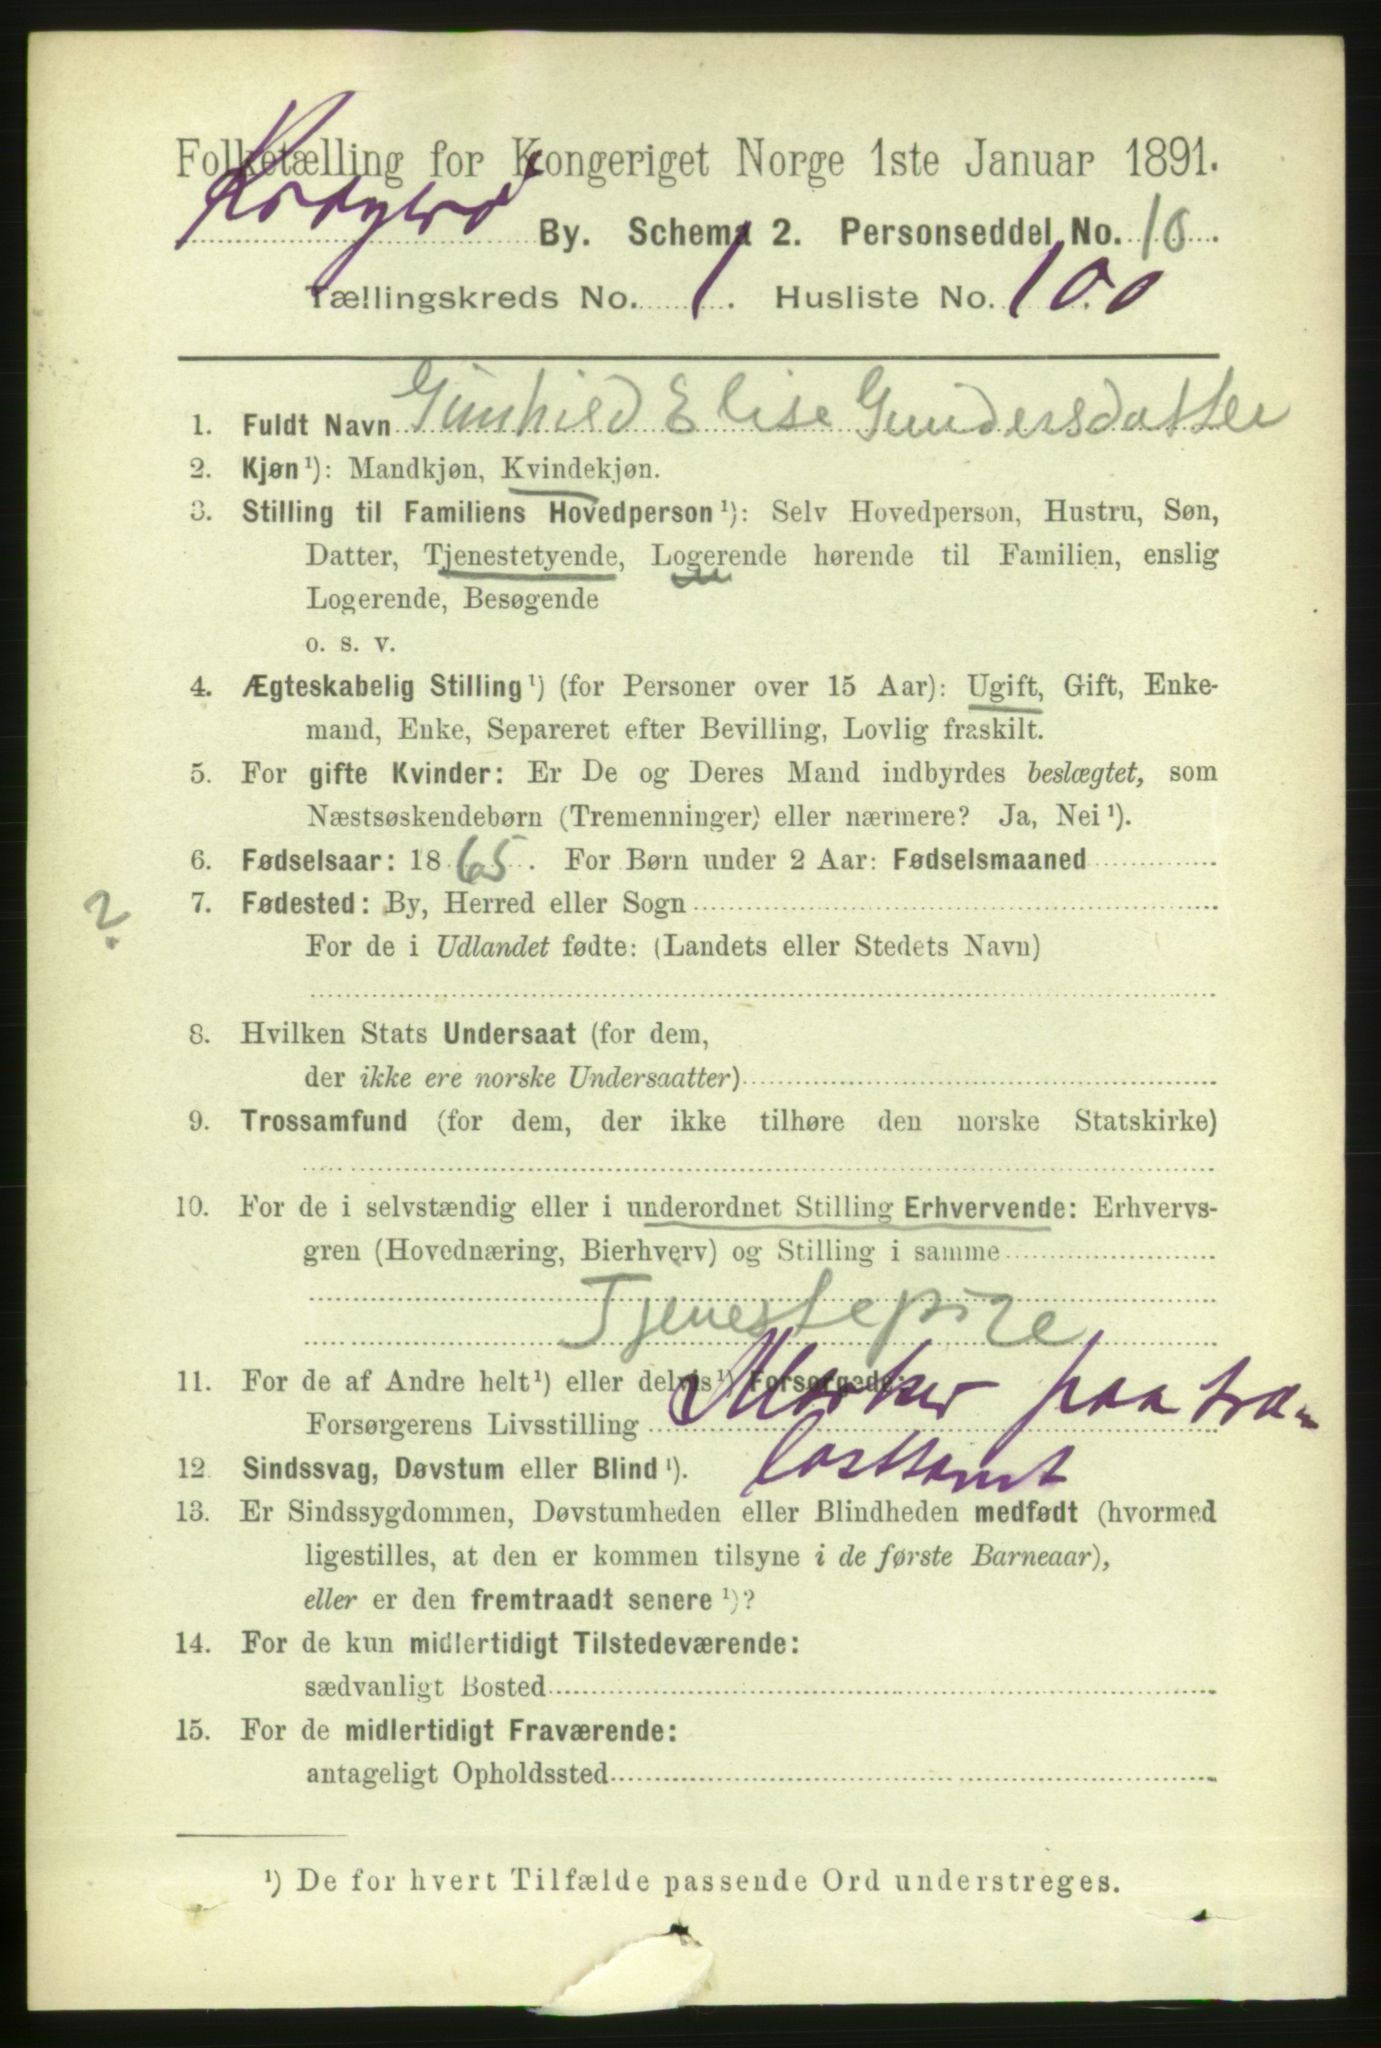 Folketælling for Kongeriget Norge 1ste Januar 1891.
Kragerø By. Schema 2. Personseddel No. 10.
Tællingskreds No. 1. Husliste No. 100
1. Fuldt Navn Gunhild Elise Gundersdatter
2. Kjøn ¹): Mandkjøn, Kvindekjøn.
3. Stilling til Familiens Hovedperson ¹): Selv Hovedperson, Hustru, Søn,
Datter, Tjenestetyende, Logerende hørende til Familien, enslig
Logerende, Besøgende
o. s. v.
4. Ægteskabelig Stilling ¹) (for Personer over 15 Aar): Ugift, Gift, Enke-
mand, Enke, Separeret efter Bevilling, Lovlig fraskilt.
5. For gifte Kvinder: Er De og Deres Mand indbyrdes beslægtet, som
Næstsøskendebørn (Tremenninger) eller nærmere? Ja, Nei ¹).
6. Fødselsaar: 1865. For Børn under 2 Aar: Fødselsmaaned
?
7. Fødested: By, Herred eller Sogn
For de i Udlandet fødte: (Landets eller Stedets Navn)
8. Hvilken Stats Undersaat (for dem,
der ikke ere norske Undersaatter)
9. Trossamfund (for dem, der ikke tilhøre den norske Statskirke)
10. For de i selvstændig eller i underordnet Stilling Erhvervende: Erhvervs-
gren (Hovednæring, Bierhverv) og Stilling i samme
Tjenestepige
11. For de af Andre helt ¹) eller delvis ¹) Forsørgede:
Forsørgerens Livsstilling
12. Sindssvag, Døvstum eller Blind ¹).
13. Er Sindssygdommen, Døvstumheden eller Blindheden medfødt (hvormed
ligestilles, at den er kommen tilsyne i de første Barneaar),
eller er den fremtraadt senere ¹)?
14. For de kun midlertidigt Tilstedeværende:
sædvanligt Bosted
15. For de midlertidigt Fraværende:
antageligt Opholdssted
¹) De for hvert Tilfælde passende Ord understreges.